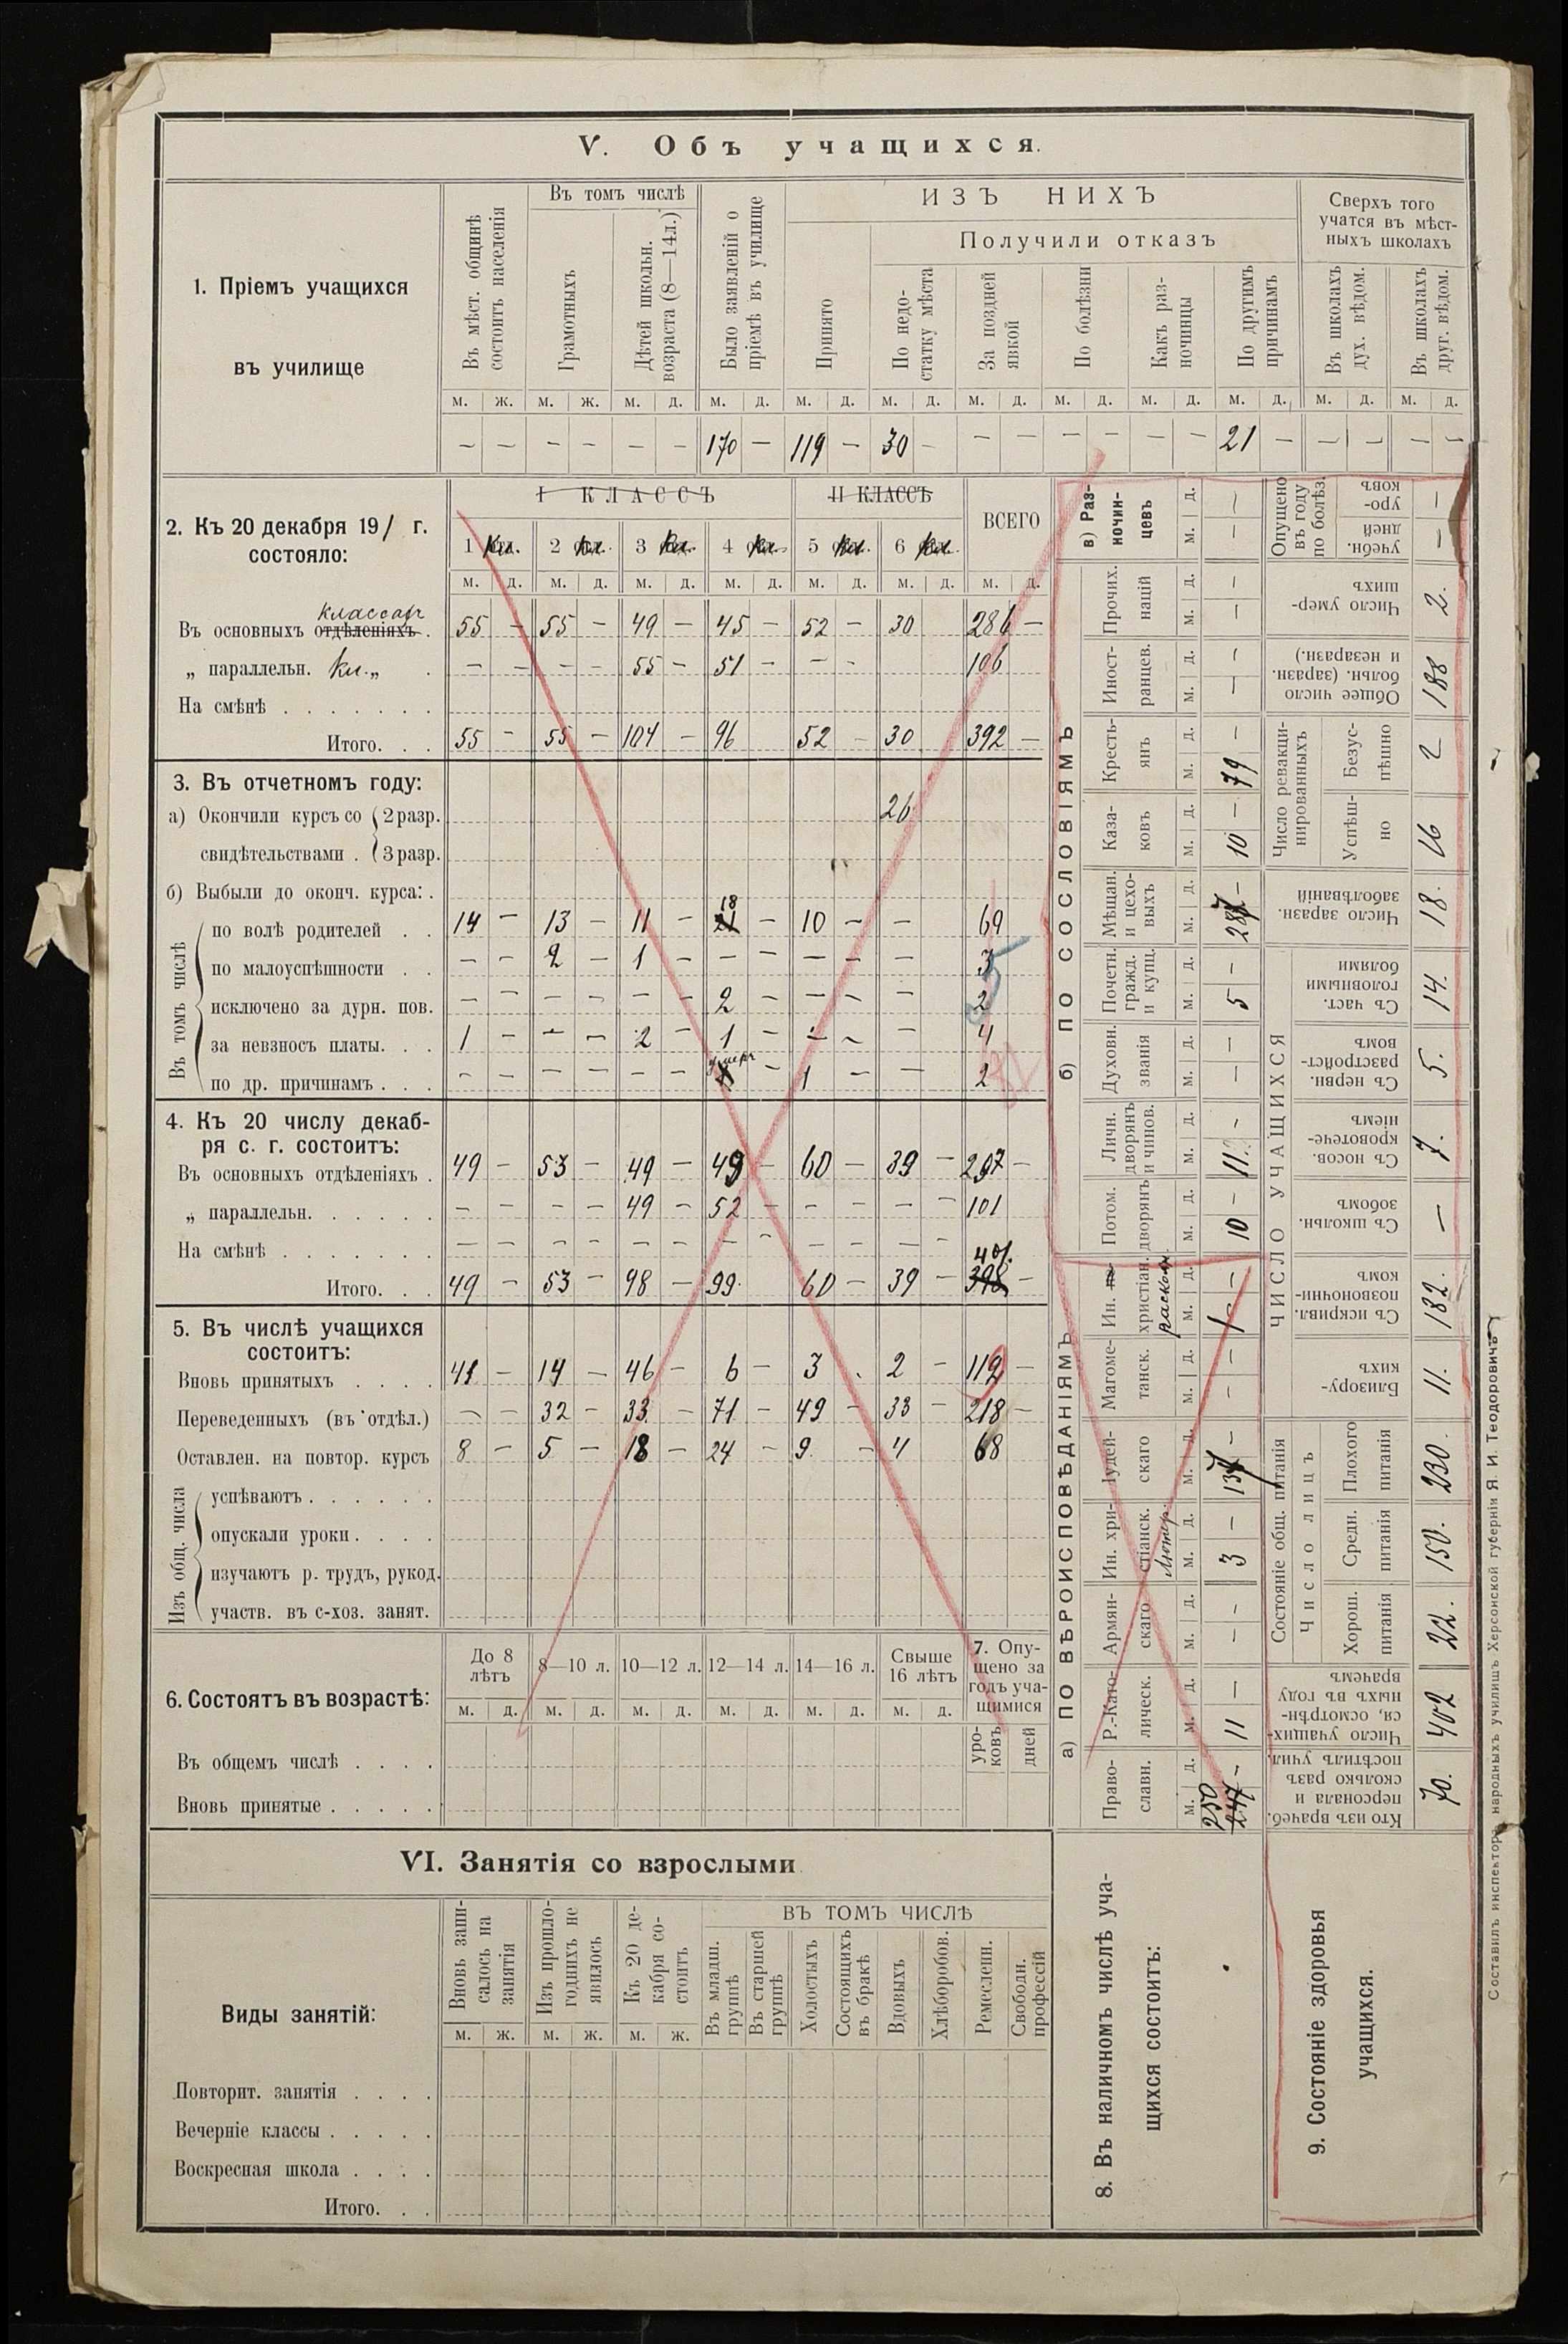 V. Объ учащихся.
1. Пріемъ учащихся
въ училище
Въ мѣст. общинѣ
состоитъ населенія
Въ томъ числѣ
Грамотныхъ
Дѣтей школьн.
возраста (8—14л.)
Было заявленій о
пріемѣ въ училище
ИЗЪ НИХЪ
Принято
Получили отказъ
По недо-
статку мѣста
За поздней
явкой
По болѣзни
Какъ раз-
ночинцы
По другимъ
причинамъ
Сверхъ того
учатся въ мѣст-
ныхъ школахъ
Въ школахъ
дух. вѣдом.
Въ школахъ
друг. вѣдом.
м. ж. м. ж. м. д. м. д. м. д. м. д. м. д. м. д. м. д. м. д. м. д. м. д.
— — — — — — 170 — 119 — 30 — — — — — — — 21 — — — — —
2. Къ 20 декабря 191 г.
состояло:
I КЛАССЪ II КЛАССЪ ВСЕГО
1 кл. 2 кл. 3 кл. 4 кл. 5 кл. 6 кл.
м. д. м. д. м. д. м. д. м. д. м. д. м. д.
классах
Въ основныхъ отдѣленіяхъ . 55 — 55 — 49 — 45 — 52 — 30 286 —
„ параллельн. кл. „ . — — — — 55 — 51 — — — 106
На смѣнѣ . . . . . . .
Итого. . . 55 — 55 — 104 — 96 52 — 30 392 —
3. Въ отчетномъ году:
а) Окончили курсъ со 2 разр. 26
свидѣтельствами . 3 разр.
б) Выбыли до оконч. курса: .
Въ томъ числѣ
18
по волѣ родителей . . 14 — 13 — 11 — 21 — 10 — — 69
по малоуспѣшности . . — — 2 — 1 — — — — — — 3
исключено за дурн. пов. — — — — — — 2 — — — — 2
за невзносъ платы. . . 1 — — — 2 — 1 — — — — 4
по др. причинамъ . . . — — — — — — — 1 — — 2
4. Къ 20 числу декаб-
ря с. г. состоитъ:
Въ основныхъ отдѣленіяхъ . 49 — 53 — 49 — 49 — 60 — 39 — 297 —
„ параллельн. . . . . . — — — — 49 — 52 — — — — — 101
На смѣнѣ . . . . . . . — — — — — — — — — — — —
401.
Итого. . . 49 — 53 — 98 — 99. 60 — 39 — 398 —
5. Въ числѣ учащихся
состоитъ:
Вновь принятыхъ . . . . 41 — 14 — 46 — 6 — 3 . 2 — 112 —
Переведенныхъ (въ отдѣл.) — — 32 — 33 — 71 — 49 — 33 — 218 —
Оставлен. на повтор. курсъ 8 — 5 — 18 — 24 — 9. — 4 68
Изъ общ. числа
успѣваютъ . . . . . .
опускали уроки . . . .
изучаютъ р. трудъ, рукод.
участв. въ с-хоз. занят.
6. Состоятъ въ возрастѣ:
До 8
лѣтъ
8—10 л. 10—12 л. 12—14 л. 14—16 л.
Свыше
16 лѣтъ
7. Опу-
щено за
годъ уча-
щимися
м. д. м. д. м. д. м. д. м. д. м. д.
уро-
ковъ
дней
Въ общемъ числѣ . . . .
Вновь принятые . . . . .
VI. Занятія со взрослыми
Виды занятій:
Вновь запи-
салось на
занятія
Изъ прошло-
годнихъ не
явилось
Къ 20 де-
кабря со-
стоитъ
ВЪ ТОМЪ ЧИСЛѢ
Въ младш.
группѣ
Въ старшей
группѣ
Холостыхъ
Состоящихъ
въ бракѣ
Вдовыхъ
Хлѣборобов.
Ремесленн.
Свободн.
профессій
м. ж. м. ж. м. ж.
Повторит. занятія . . . .
Вечерніе классы . . . . .
Воскресная школа . . . .
Итого. . .
8. Въ наличномъ числѣ уча-
щихся состоитъ:
а) ПО ВѢРОИСПОВѢДАНІЯМЪ
Право-
славн.
м. д.
250
247 —
Р.-Като-
лическ.
м. д.
11 —
Армян-
скаго
м. д.
— —
Ин. хри-
стіанск.
Лютер.
м. д.
3 —
Іудей-
скаго
м. д.
137 —
Магоме-
танск.
м. д.
— —
Ин.
христіан.
раскольн.
м. д.
1 —
б) ПО СОСЛОВІЯМЪ
Потом.
дворянъ
м. д.
10 —
Личн.
дворянъ
и чинов.
м. д.
11 —
Духовн.
званія
м. д.
— —
Почетн.
гражд.
и купц.
м. д.
5 —
Мѣщан.
и цехо-
выхъ
м. д.
287 —
Каза-
ковъ
м. д.
10 —
Кресть-
янъ
м. д.
79 —
Иност-
ранцев.
м. д.
— —
Прочих.
націй
м. д.
— —
в) Раз-
ночин-
цевъ
м. д.
— —
9. Состояніе здоровья
учащихся.
Кто изъ врачеб.
персонала и
сколько разъ
посѣтилъ учил.
70.
Число учащих-
ся, осмотрѣн-
ныхъ въ году
врачемъ
402
Состояніе общ. питанія
Число лицъ
Хорош.
питанія
22.
Средн.
питанія
150.
Плохого
питанія
230.
ЧИСЛО УЧАЩИХСЯ
Близору-
кихъ
11.
Съ искривл.
позвоночни-
комъ
182.
Съ школьн.
зобомъ
—
Съ носов.
кровотече-
ніемъ
7.
Съ нервн.
разстройст-
вомъ
5.
Съ част.
головными
болями
14.
Число заразн.
заболѣваній
18.
Число ревакци-
нированныхъ
Успѣш-
но
16
Безус-
пѣшно
2
Общее число
больн. (заразн.
и незаразн.)
188
Число умер-
шихъ
2.
Опущено
въ году
по болѣз.
учебн.
дней
—
уро-
ковъ
—
Составилъ инспекторъ народныхъ училищъ Херсонской губерніи Я. И. Теодоровичъ